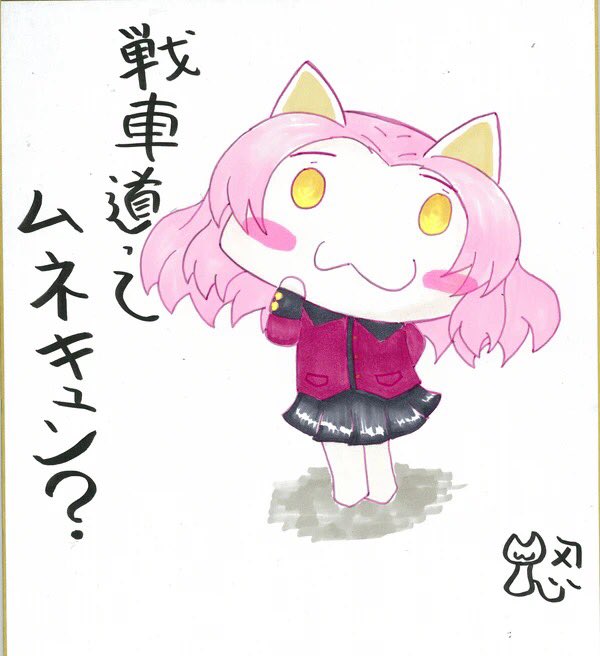 戦車道って
ムネキュン?
忍